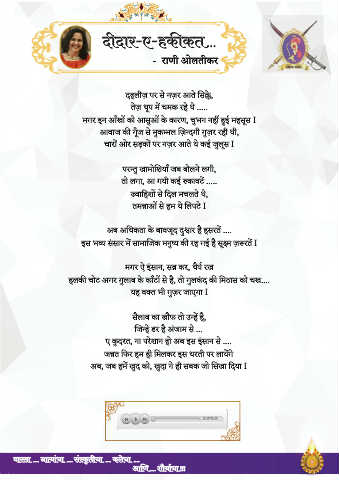 दीदार-ए-हकीकत...
- राणी ओलतीकर
दहलीज़ पर से नज़र आते सिक्के,
तेज़ धूप में चमक रहे थे .....
मगर इन आँखों को आसुओं के कारण, चुभन नहीं हुई महसूस I
आवाज की गूँज से मुकम्मल ज़िन्दगी गुज़र रही थी,
चारों ओर सड़कों पर नज़र आते थे कई जुलूस I
परन्तु खामोशियाँ जब बोलने लगी,
तो लगा, आ गयी कई रुकावटें .....
ख्वाहिशों से दिल मचलते थे,
तमन्नाओं से हम थे लिपटे I
अब अधिकता के बावजूद दुश्वार है हसरतें ....
इस भव्य संसार में सामाजिक मनुष्य की रह गई है सूक्ष्म ज़रूरतें I
मगर ऐ इंसान, सब्र कर, धैर्य रख
हलकी चोट अगर गुलाब के काँटों से है, तो गुलकंद की मिठास को चख....
यह वक्त भी गुज़र जाएगा I
सैलाब का ख़ौफ तो उन्हें है,
जिन्हें डर है अंजाम से ...
ए कुदरत, ना परेशान हो अब इस इंसान से ....
जन्नत फिर हम ही मिलकर इस धरती पर लायेंगे
अब, जब हमें खुद को, खुदा ने ही सबक जो सिखा दिया I
वारसा ... जात्यांचा ... संस्कृतीचा ... कलेचा ...
आणि... शौर्याचा !!!